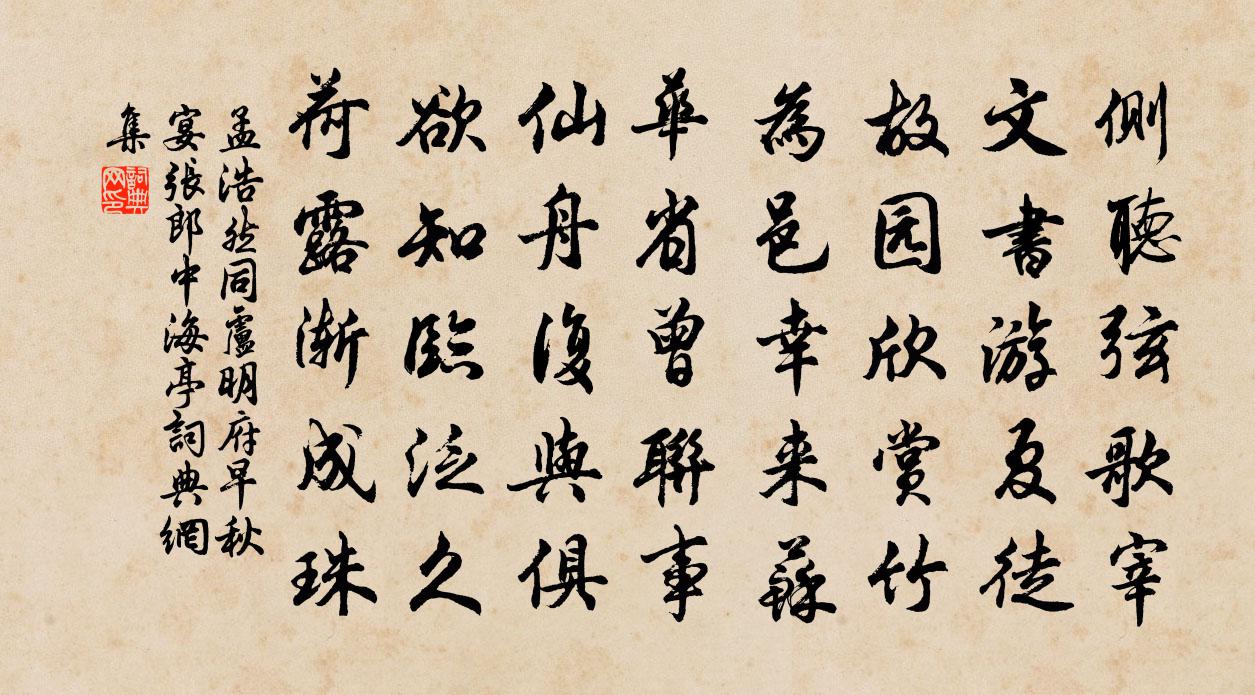 側聽弦歌宰
文書游夏徒
故园欣賞竹
為邑幸来蘇
華省曾聯事
仙舟復與俱
欲知臨泛久
荷露漸成珠
孟浩然同盧明府早秋
宴張郎中海亭詞典網
集
詞典网印